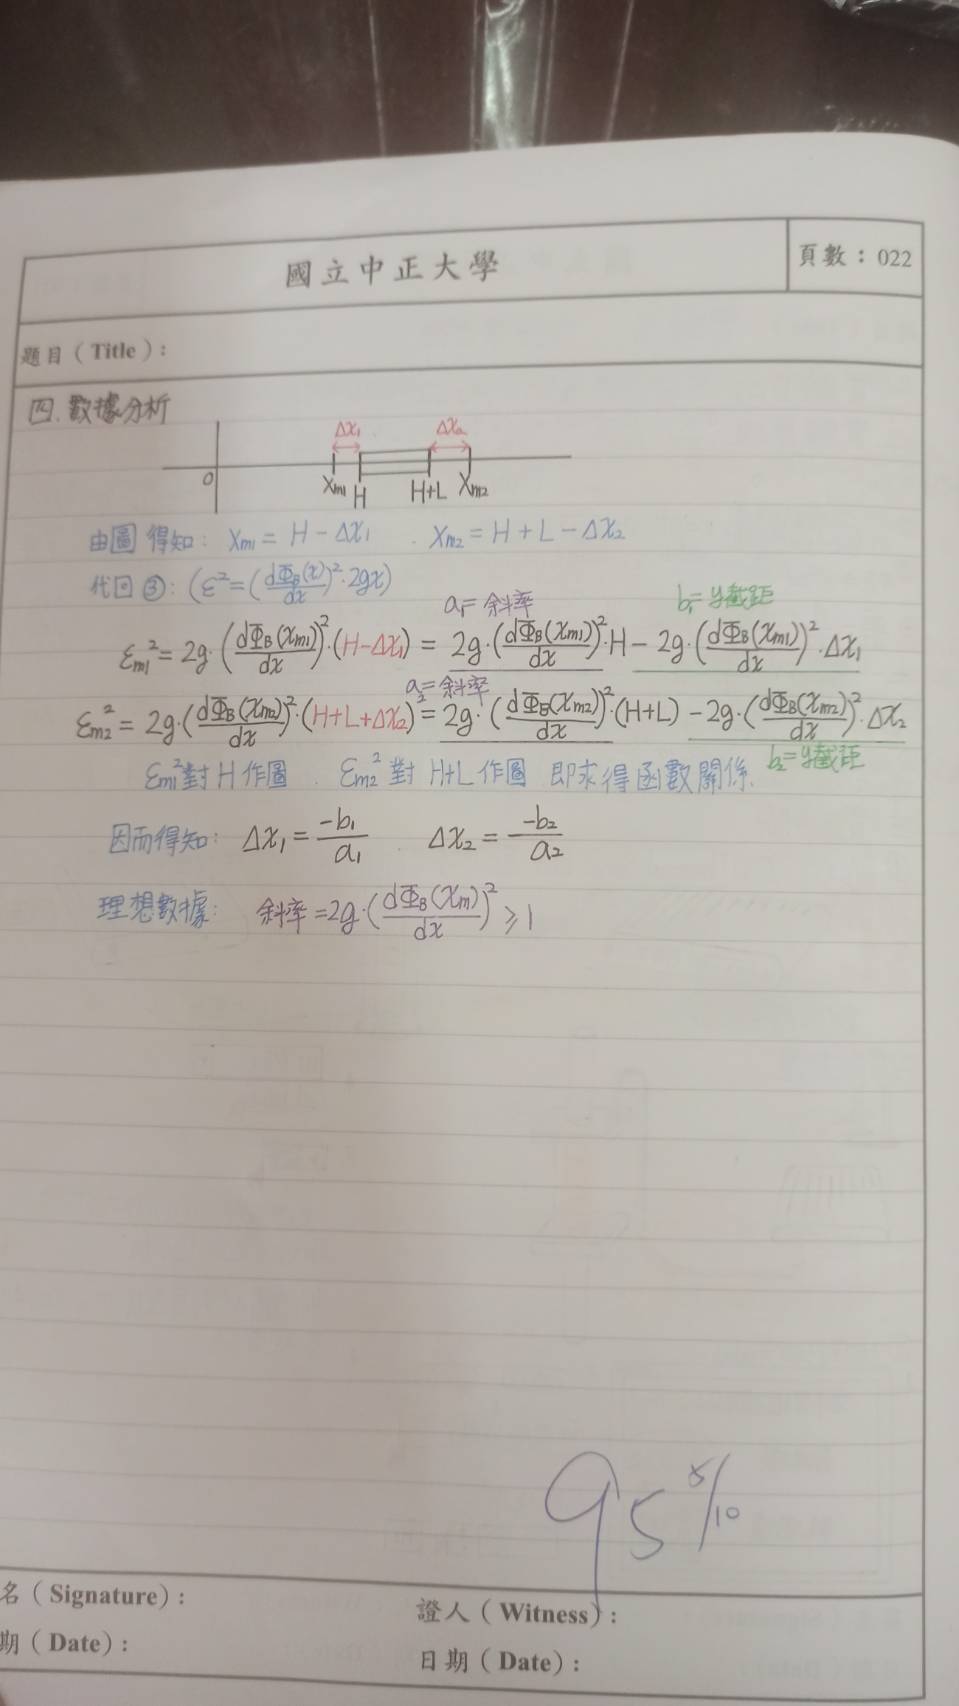 國立中正大學
頁數：022
題目（Title）：
四. 數據分析
Δx₁ Δx₂
0 Xm1 H H+L Xm2
由圖得知： Xm1 = H - Δx₁ . Xm2 = H + L - Δx₂
代回③： (ε² = (dΦB(x)/dx)²·2gx)
a₁= 斜率 b₁= y截距
εm1² = 2g·(dΦB(Xm1)/dx)²·(H-Δx₁) = 2g·(dΦB(Xm1)/dx)²·H - 2g·(dΦB(Xm1)/dx)²·Δx₁
a₂= 斜率
εm2² = 2g·(dΦB(Xm2)/dx)²·(H+L+Δx₂) = 2g·(dΦB(Xm2)/dx)²·(H+L) - 2g·(dΦB(Xm2)/dx)²·Δx₂
b₂= y截距
εm1²對 H 作圖 . εm2²對 H+L 作圖 即求得函數關係.
因而得知： Δx₁ = -b₁/a₁ . Δx₂ = -b₂/a₂
理想數據： 斜率 = 2g·(dΦB(Xm)/dx)² ≥ 1
95 5/10
名（Signature）：
證人（Witness）：
期（Date）：
日期（Date）：